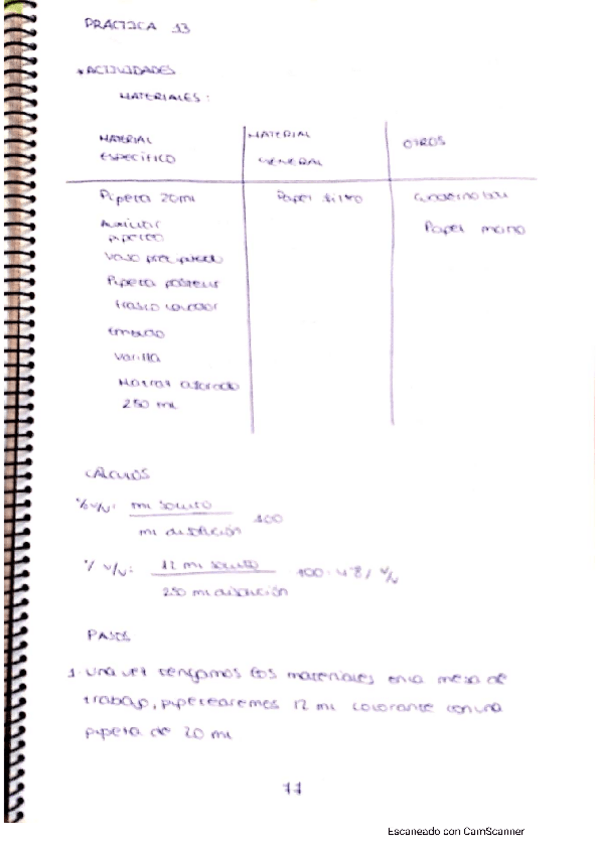 PRACTICA 13
* ACTIVIDADES
MATERIALES:
MATERIAL ESPECÍFICO
MATERIAL GENERAL
OTROS
Pipeta 20ml
Papel filtro
Cuaderno lab
Auxiliar pipeteo
Papel mano
Vaso precipitado
Pipeta pasteur
Frasco lavador
Embudo
Varilla
Matraz aforado
250 ml
CÁLCULOS
% v/v: ml soluto / ml disolución 100
% v/v: 12 ml soluto / 250 ml disolución 100 = 4'8% v/v
PASOS
1. Una vez tengamos los materiales en la mesa de
trabajo, pipetearemos 12 ml colorante con una
pipeta de 20 ml
11
Escaneado con CamScanner